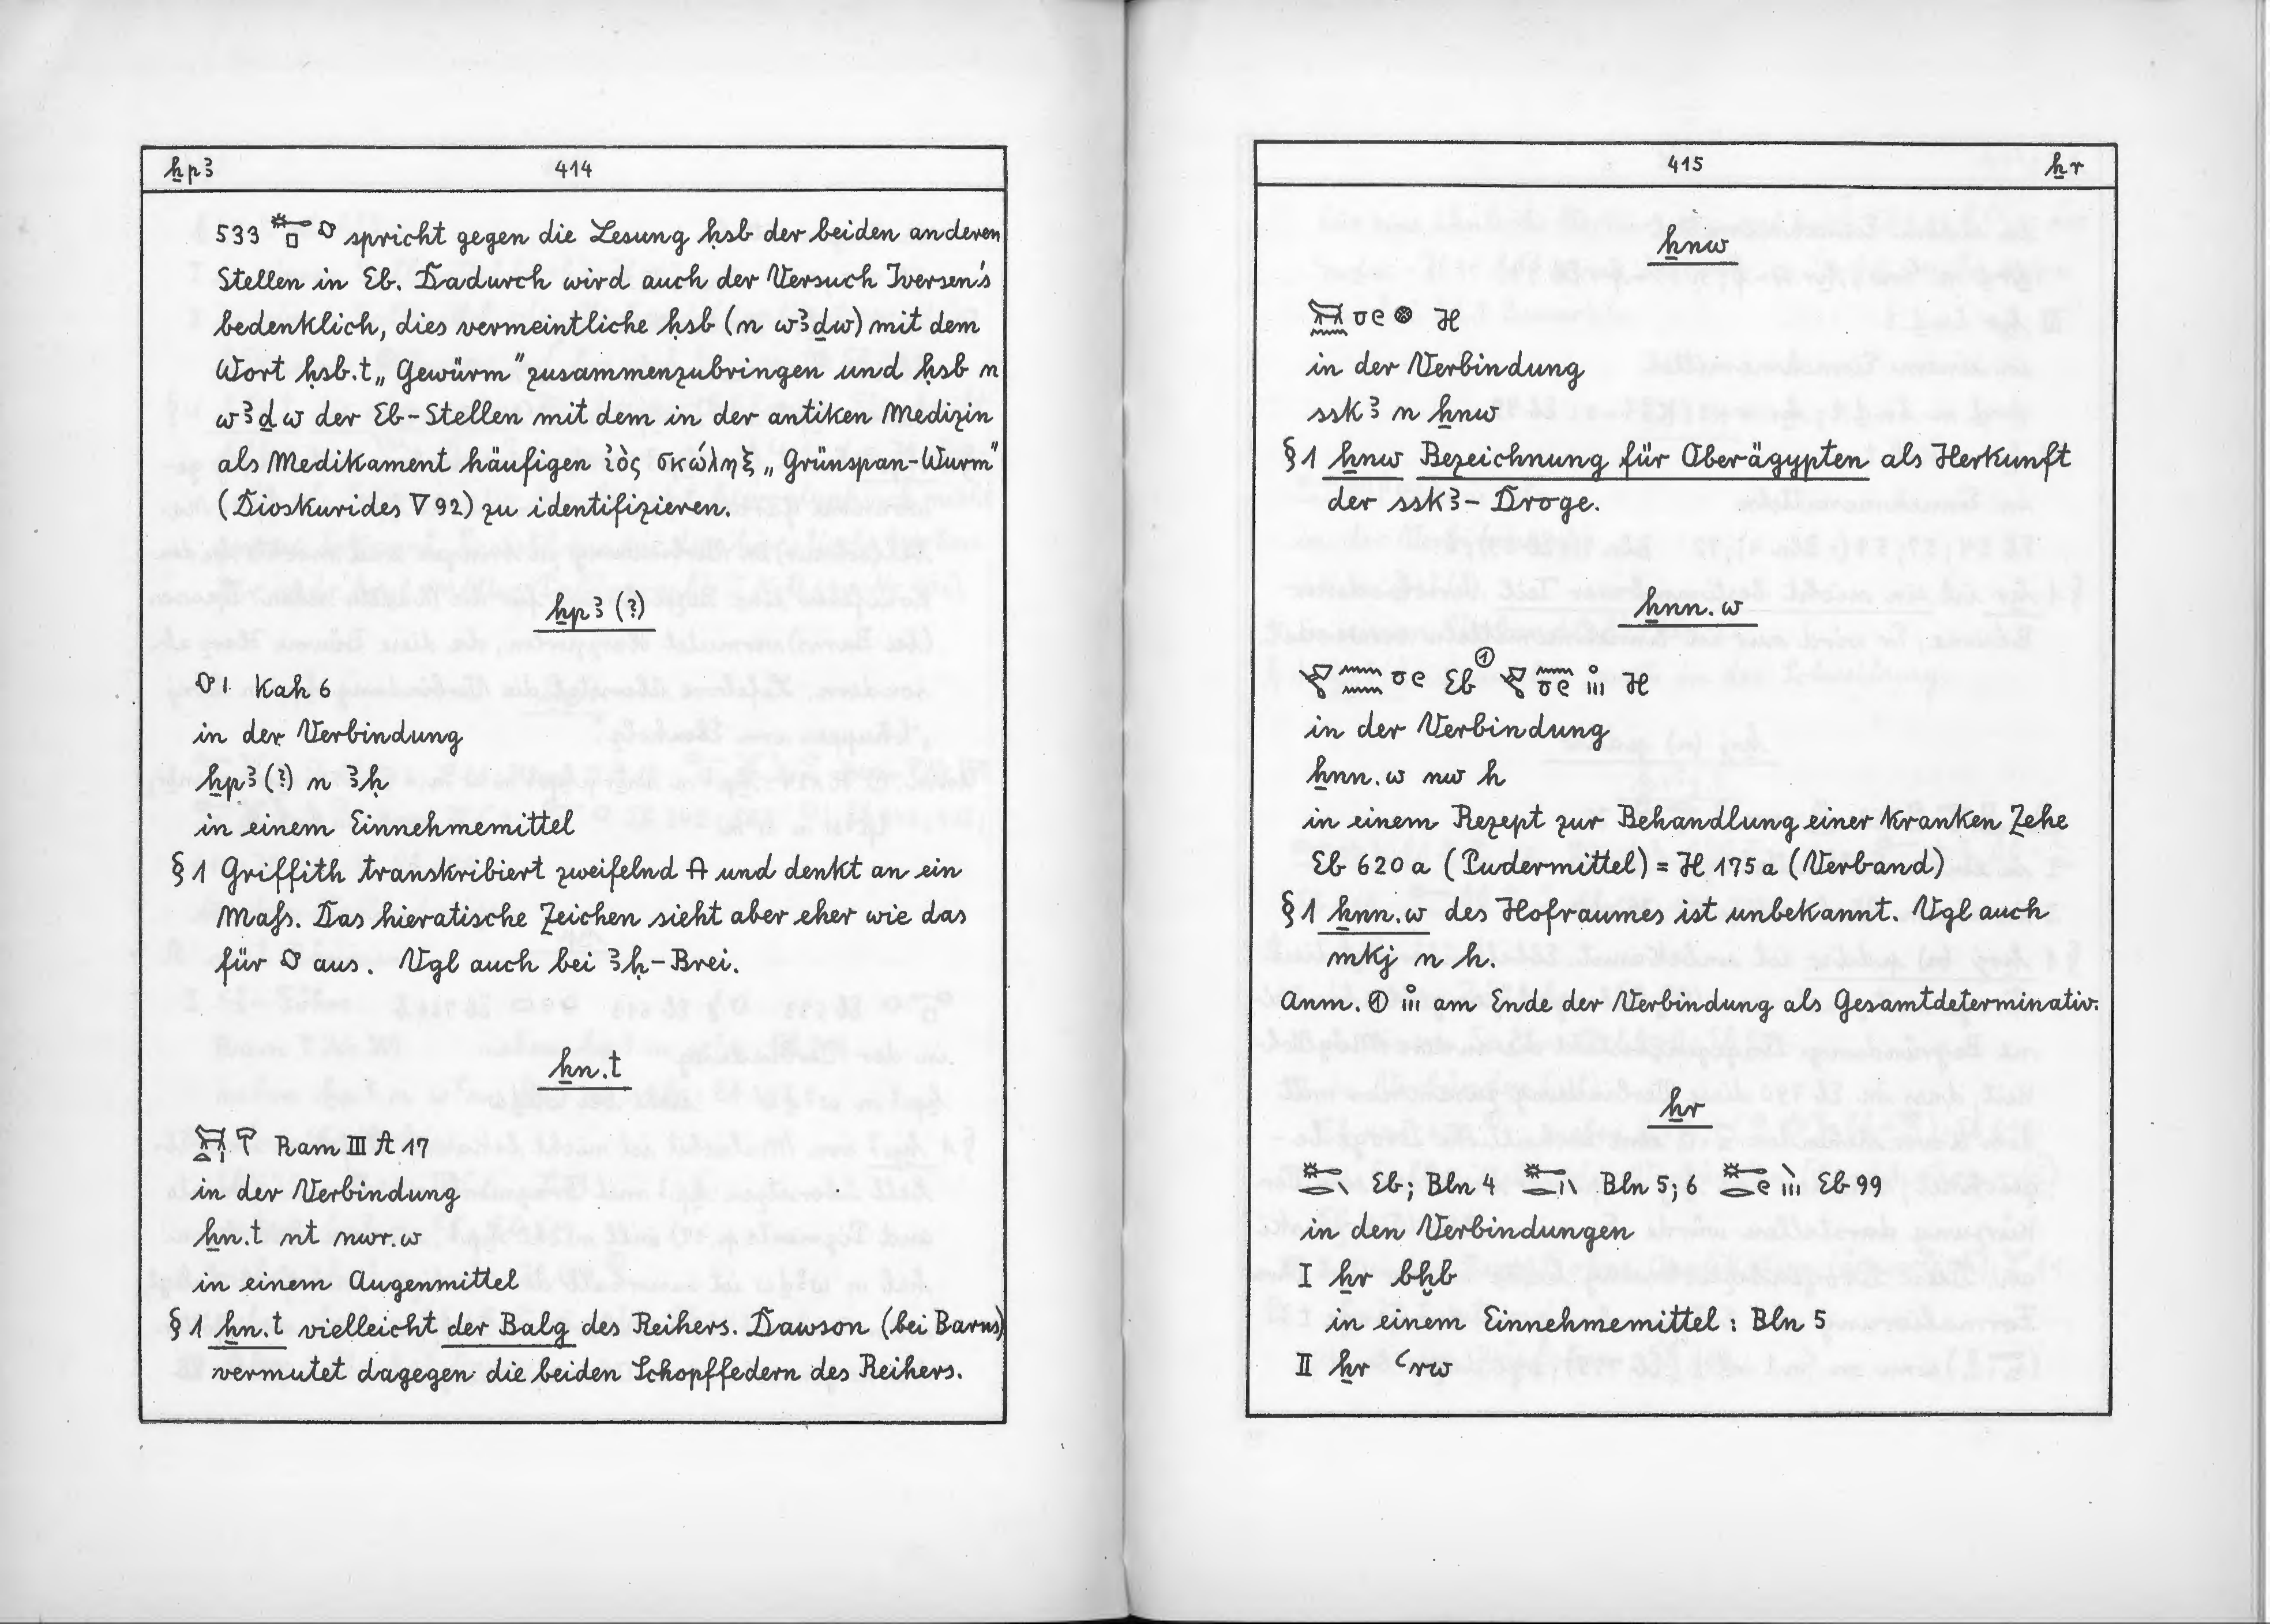 ẖpꜣ 414
533 spricht gegen die Lesung ḥsb der beiden anderen
Stellen in Eb. Dadurch wird auch der Versuch Iversen's
bedenklich, dies vermeintliche ḥsb (n wꜣḏw) mit dem
Wort ḥsb.t „Gewürm" zusammenzubringen und ḥsb n
wꜣḏw der Eb-Stellen mit dem in der antiken Medizin
als Medikament häufigen ἰὸς σκώληξ „Grünspan-Wurm"
(Dioskurides V 92) zu identifizieren.
ẖpꜣ (?)
Kah 6
in der Verbindung
ẖpꜣ (?) n ꜣḥ
in einem Einnehmemittel
§ 1 Griffith transkribiert zweifelnd und denkt an ein
Maſs. Das hieratische Zeichen sieht aber eher wie das
für aus. Vgl auch bei ꜣḥ-Brei.
ẖn.t
Ram III A 17
in der Verbindung
ẖn.t nt nwr.w
in einem Augenmittel
§ 1 ẖn.t vielleicht der Balg des Reihers. Dawson (bei Barns)
vermutet dagegen die beiden Schopffedern des Reihers.
415 ẖr
ẖnw
H
in der Verbindung
sskꜣ n ẖnw
§ 1 ẖnw Bezeichnung für Oberägypten als Herkunft
der sskꜣ-Droge.
ẖnn.w
Eb ① H
in der Verbindung
ẖnn.w nw h
in einem Rezept zur Behandlung einer kranken Zehe
Eb 620a (Pudermittel) = H 175a (Verband)
§ 1 ẖnn.w des Hofraumes ist unbekannt. Vgl auch
mkj n h.
Anm. ① am Ende der Verbindung als Gesamtdeterminativ.
ẖr
Eb; Bln 4 Bln 5; 6 Eb 99
in den Verbindungen
I ẖr bḫb
in einem Einnehmemittel: Bln 5
II ẖr ꜥrw